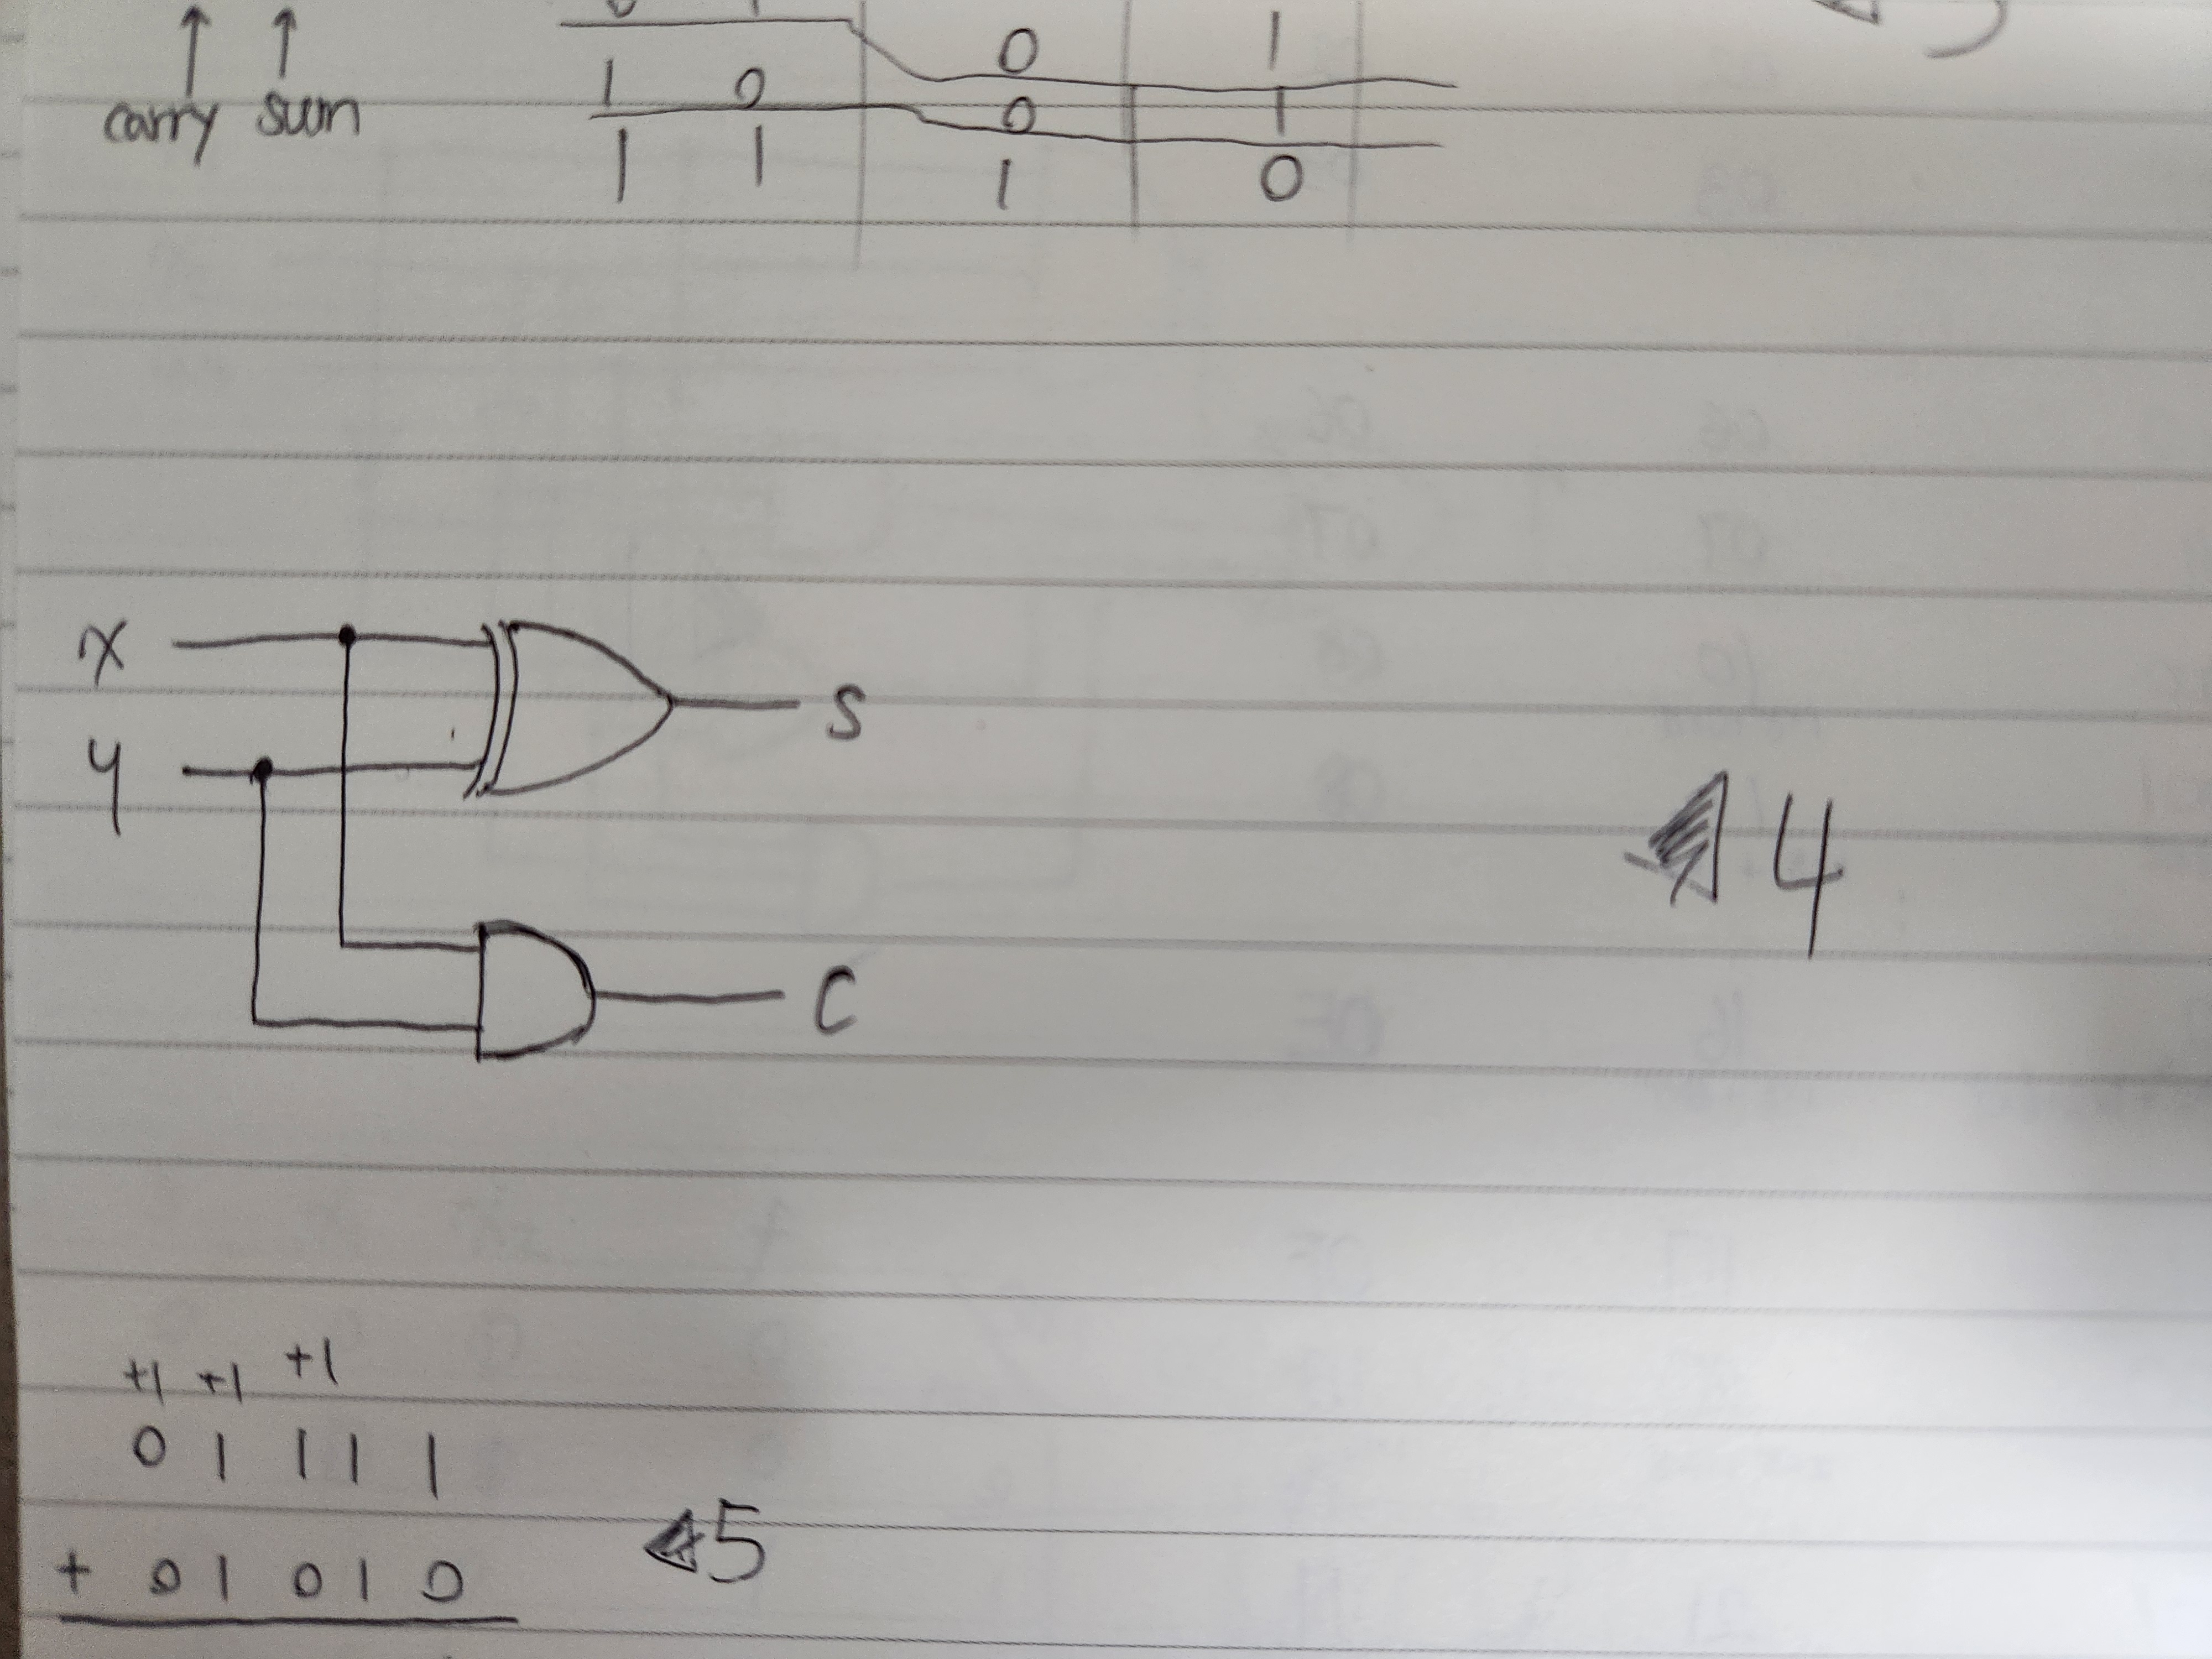 carry sum
0 1
1 0 0 1
1 1 1 0
x
S
y
4
C
+1 +1 +1
0 1 1 1 1
+ 0 1 0 1 0
5